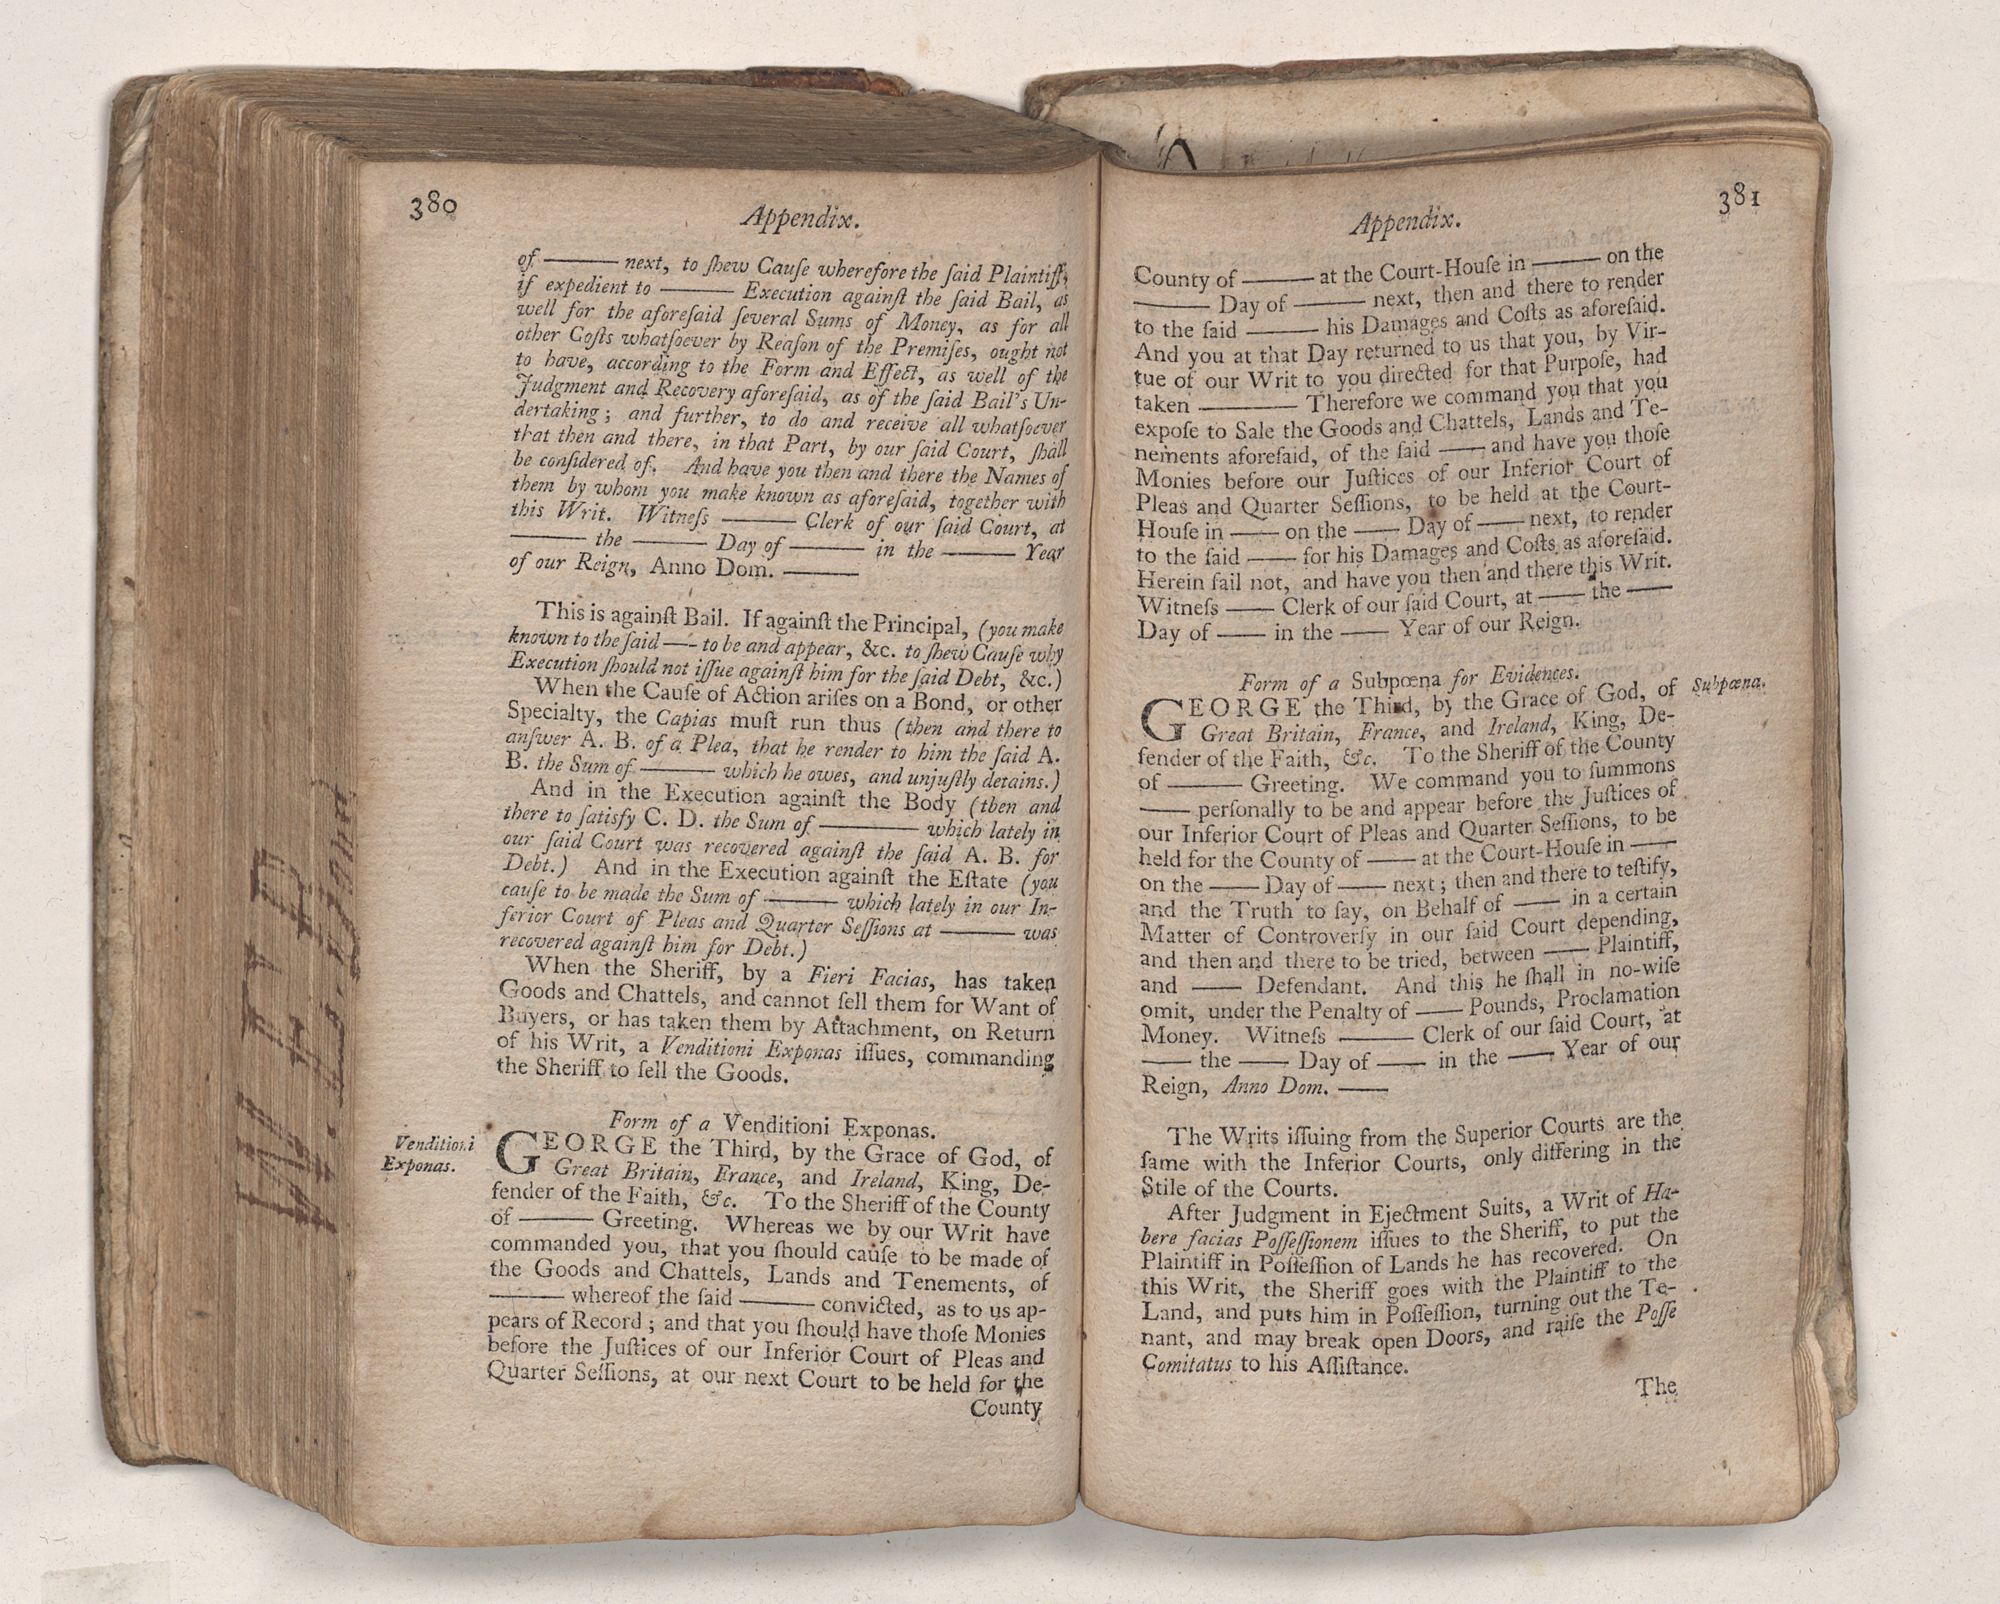 380
Appendix.
of ——— next, to ſhew Cauſe wherefore the ſaid Plaintiff,
if expedient to ——— Execution againſt the ſaid Bail, as
well for the aforeſaid ſeveral Sums of Money, as for all
other Coſts whatſoever by Reaſon of the Premiſes, ought not
to have, according to the Form and Effect, as well of the
Judgment and Recovery aforeſaid, as of the ſaid Bail's Un-
dertaking; and further, to do and receive all whatſoever
that then and there, in that Part, by our ſaid Court, ſhall
be conſidered of. And have you then and there the Names of
them by whom you make known as aforeſaid, together with
this Writ. Witneſs ——— Clerk of our ſaid Court, at
——— the ——— Day of ——— in the ——— Year
of our Reign, Anno Dom. ———
This is againſt Bail. If againſt the Principal, (you make
known to the ſaid —— to be and appear, &c. to ſhew Cauſe why
Execution ſhould not iſſue againſt him for the ſaid Debt, &c.)
When the Cauſe of Action ariſes on a Bond, or other
Specialty, the Capias muſt run thus (then and there to
anſwer A. B. of a Plea, that he render to him the ſaid A.
B. the Sum of ——— which he owes, and unjuſtly detains.)
And in the Execution againſt the Body (then and
there to ſatisfy C. D. the Sum of ——— which lately in
our ſaid Court was recovered againſt the ſaid A. B. for
Debt.) And in the Execution againſt the Eſtate (you
cauſe to be made the Sum of ——— which lately in our In-
ferior Court of Pleas and Quarter Seſſions at ——— was
recovered againſt him for Debt.)
When the Sheriff, by a Fieri Facias, has taken
Goods and Chattels, and cannot ſell them for Want of
Buyers, or has taken them by Attachment, on Return
of his Writ, a Venditioni Exponas iſſues, commanding
the Sheriff to ſell the Goods.
Form of a Venditioni Exponas.
Venditioni
Exponas.
GEORGE the Third, by the Grace of God, of
Great Britain, France, and Ireland, King, De-
fender of the Faith, &c. To the Sheriff of the County
of ——— Greeting. Whereas we by our Writ have
commanded you, that you ſhould cauſe to be made of
the Goods and Chattels, Lands and Tenements, of
——— whereof the ſaid ——— convicted, as to us ap-
pears of Record; and that you ſhould have thoſe Monies
before the Juſtices of our Inferior Court of Pleas and
Quarter Seſſions, at our next Court to be held for the
County
381
Appendix.
County of ——— at the Court-Houſe in ——— on the
——— Day of ——— next, then and there to render
to the ſaid ——— his Damages and Coſts as aforeſaid.
And you at that Day returned to us that you, by Vir-
tue of our Writ to you directed for that Purpoſe, had
taken ——— Therefore we command you that you
expoſe to Sale the Goods and Chattels, Lands and Te-
nements aforeſaid, of the ſaid —— and have you thoſe
Monies before our Juſtices of our Inferior Court of
Pleas and Quarter Seſſions, to be held at the Court-
Houſe in —— on the —— Day of —— next, to render
to the ſaid —— for his Damages and Coſts as aforeſaid.
Herein fail not, and have you then and there this Writ.
Witneſs —— Clerk of our ſaid Court, at —— the ——
Day of —— in the —— Year of our Reign.
Form of a Subpœna for Evidences.
Subpœna.
GEORGE the Third, by the Grace of God, of
Great Britain, France, and Ireland, King, De-
fender of the Faith, &c. To the Sheriff of the County
of ——— Greeting. We command you to ſummons
—— perſonally to be and appear before the Juſtices of
our Inferior Court of Pleas and Quarter Seſſions, to be
held for the County of —— at the Court-Houſe in ——
on the —— Day of —— next; then and there to teſtify,
and the Truth to ſay, on Behalf of —— in a certain
Matter of Controverſy in our ſaid Court depending,
and then and there to be tried, between —— Plaintiff,
and —— Defendant. And this he ſhall in no-wiſe
omit, under the Penalty of —— Pounds, Proclamation
Money. Witneſs ——— Clerk of our ſaid Court, at
—— the —— Day of —— in the —— Year of our
Reign, Anno Dom. ——
The Writs iſſuing from the Superior Courts are the
ſame with the Inferior Courts, only differing in the
Stile of the Courts.
After Judgment in Ejectment Suits, a Writ of Ha-
bere facias Poſſeſſionem iſſues to the Sheriff, to put the
Plaintiff in Poſſeſſion of Lands he has recovered. On
this Writ, the Sheriff goes with the Plaintiff to the
Land, and puts him in Poſſeſſion, turning out the Te-
nant, and may break open Doors, and raiſe the Poſſe
Comitatus to his Aſſiſtance.
The